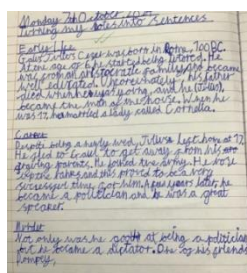 Monday 2nd October
Turning my notes into sentences
Early Life
Gaius Julius Caesar was born in Rome, 100 BC.
At the age of he started being tutored. He
was from an aristocratic family and became
well educated. Unfortunately, his father
died when he was young, and he (Julius),
became the man of the house. When he
was 17 he married a lady called Cornelia.
Career
Despite being a newly wed, Julius left home at 17
He fled to to get away from his
parents. He joined the army. He rose
up the ranks and this proved to be a very
successful time for him. A few years later he
became a politician and he was a great
speaker.
Murder
Not only was he good at being a politician
but he became a dictator. One of his friends
Pompey,